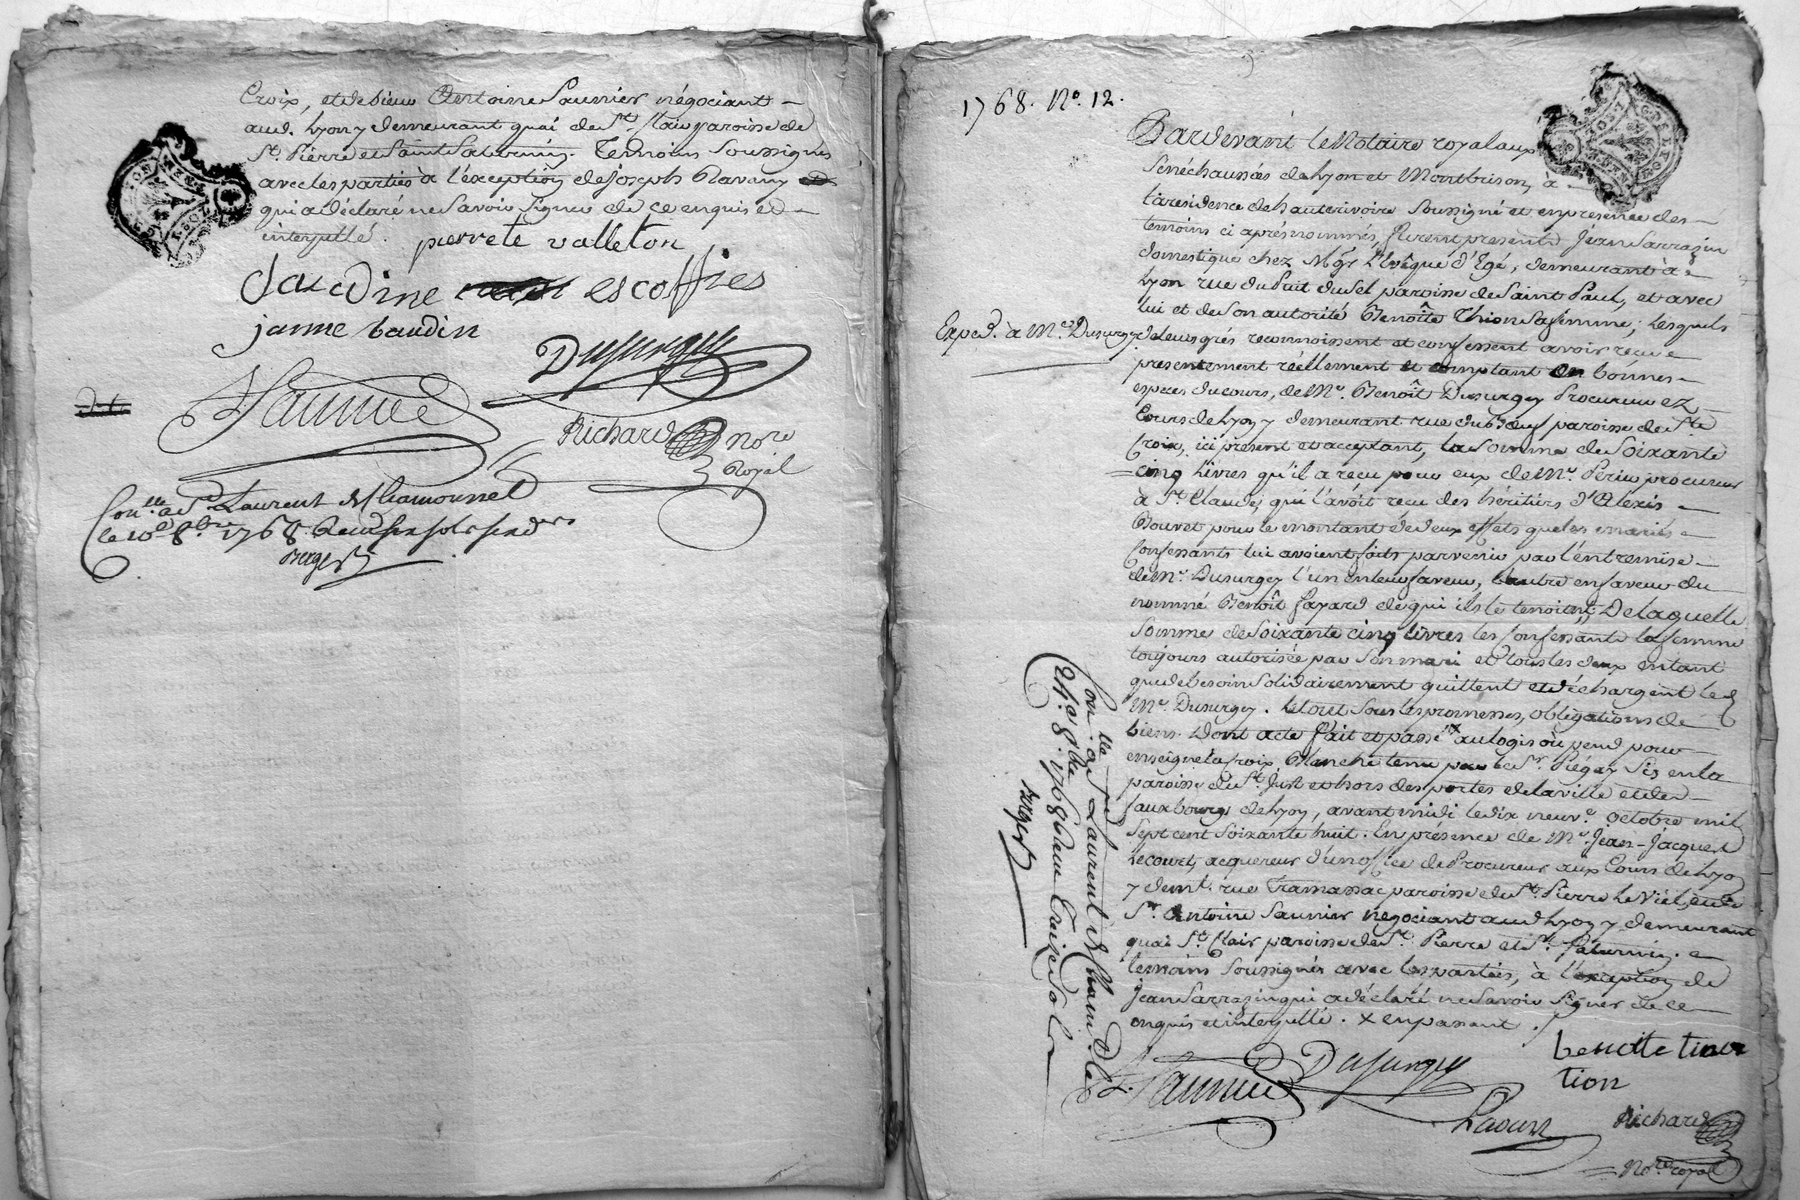 Croix, et de sieur Antoine Saunier négociant
aud. Lyon y demeurant quai de St. Clair paroisse de
St. Pierre et Saint Saturnin. Temoins soussignés
avec les parties à l'éxception de Joseph Ravany
qui a déclaré ne savoir signer de ce enquis et
interpellé.
pierrete valleton
Claudine escoffies
janne baudin
Dusurgey
Saunier
Richard nore
Royal
Con.lle a St. Laurent de Chamousset
le 10 8bre 1768 Reçu
Berger
1768. No. 12.
Pardevant le Notaire royal aux
Sénéchaussées de Lyon et Montbrison, à
la résidence de hauterivoire soussigné et en présence des
temoins ci après nommés, furent présents Jean Sarrazin
domestique chez Mgr. L'Evêque d'Egé, demeurant à
Lyon rue du Puit du Sel paroisse de Saint Paul, et avec
lui et de son autorité Benoîte Thion sa femme; lesquels
Exped. à Me. Dusurgey
de leurs grés reconnoissent et confessent avoir reçu
présentement réellement et comptant en bonnes
espèces du cours, de Me. Benoît Dusurgey Procureur ez
Cours de Lyon y demeurant rue du Boeuf paroisse de Ste
Croix, ici présent et acceptant, la somme de Soixante
cinq Livres qu'il a reçu pour eux de Me. Perin procureur
à St. Claude, qui l'avoit reçu des héritiers d'Alexis
Bouvet pour le montant de deux effets que les mariés
confessants lui avoient faits parvenir par l'entremise
de Me. Dusurgey l'un en leur faveur, l'autre en faveur du
nommé Benoît Fayard de qui ils le tenoient, De laquelle
somme de soixante cinq livres les confessants la femme
toujours autorisée par son mari et tous les deux en tant
que de besoin solidairement quittent et déchargent led.
Me. Dusurgey. le tout sous les promesses, obligations de
biens. Dont acte fait et passé x au logis où pend pour
enseigne la croix Blanche tenu par le Sr. Pégay sis en la
paroisse de St. Just et hors des portes de la ville et des
fauxbourgs de Lyon, avant midi le dix neuv.e octobre mil
sept cent soixante huit. En présence de Me. Jean-Jacques
Lecourt, acquereur d'un office de Procureur aux Cours de Lyon
y demt. rue Tramassac paroisse de St. Pierre le Viel, et de
Sr. Antoine Saunier négociant aud. Lyon y demeurant
quai St. Clair paroisse de St. Pierre et St. Saturnin.
temoins soussignés avec les parties, à l'éxception de
Jean Sarrazin qui a déclaré ne savoir signer de ce
enquis et interpellé. x en passant.
Con.lle a St. Laurent de Cham. le
24e. 8bre. 1768 Reçu treize sols
Berger
Dusurgey
benoite
tion
Saunier
Richard
Nore royal